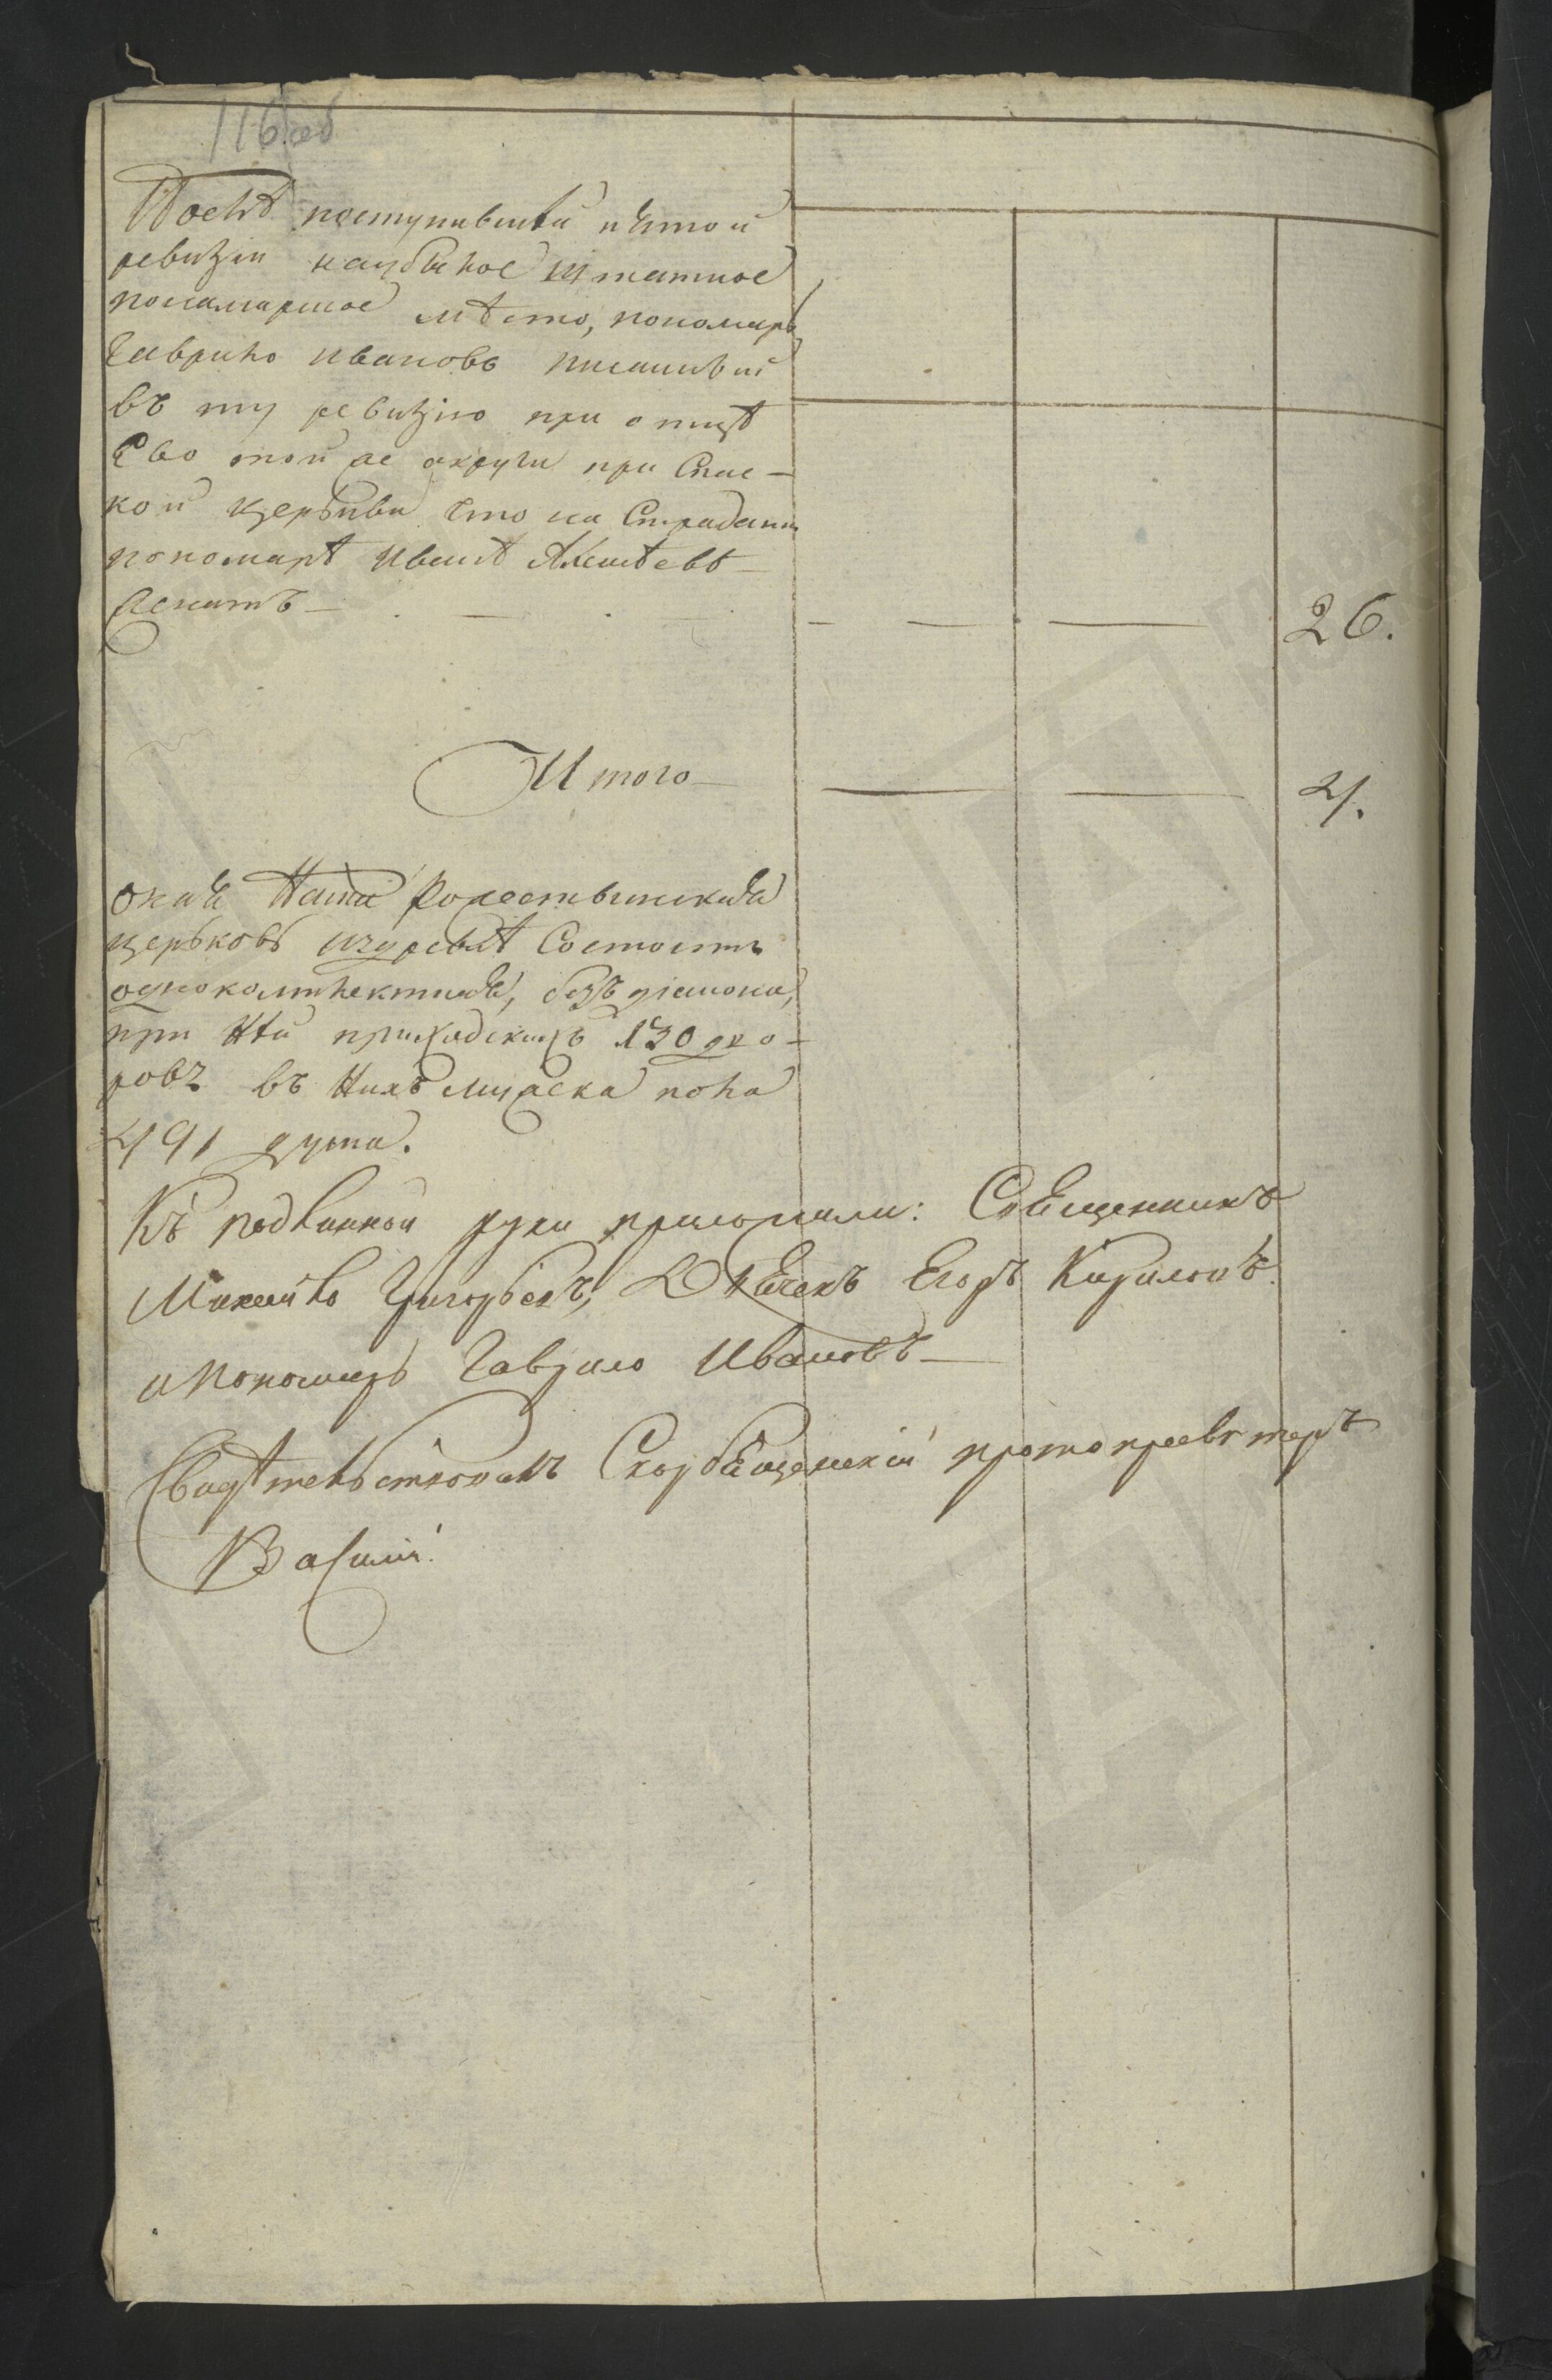 116 об
Послѣ поступившей пятой
ревизіи на убылое штатное
пономарское мѣсто, пономарь
Гаврило Ивановъ писанный
въ ту ревизію при отцѣ
Ево той же округи при Спас-
кой церькви что на
пономарѣ Иванѣ Алексѣевѣ
женатъ — 26.
Итого — 4.
Оная Наша Рожественская
церьковь Состоитъ
однокомплектная, безъ діакона,
при Ней приходскихъ 130 дво-
ровъ въ Нихъ мужеска пола
491 душа.
Къ подлинной руки приложили: Священникъ
Михайло Григорьевъ, Дьячекъ Егоръ Кириловъ
и Пономарь Гаврило Ивановъ —
Свидѣтельствовалъ Скорбященскій протопресвитеръ
Василій.